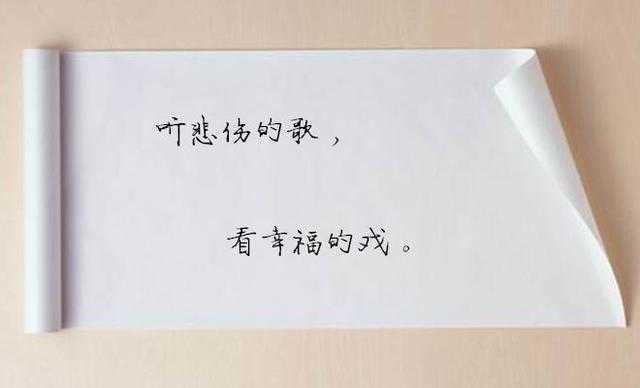 听悲伤的歌，
看幸福的戏。